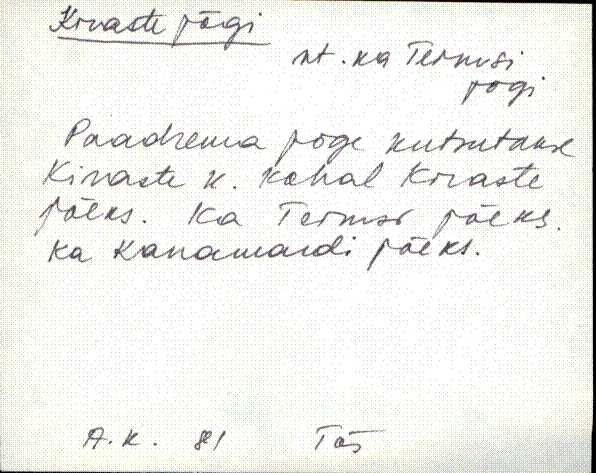 Kivaste jõgi
vt. ka Termsi
jõgi
Paadrema jõge kutsutakse
Kivaste k. kohal Kivaste
jõeks. Ka Termsi jõeks.
ka Kanamardi jõeks.
A.K. 81 Tõs